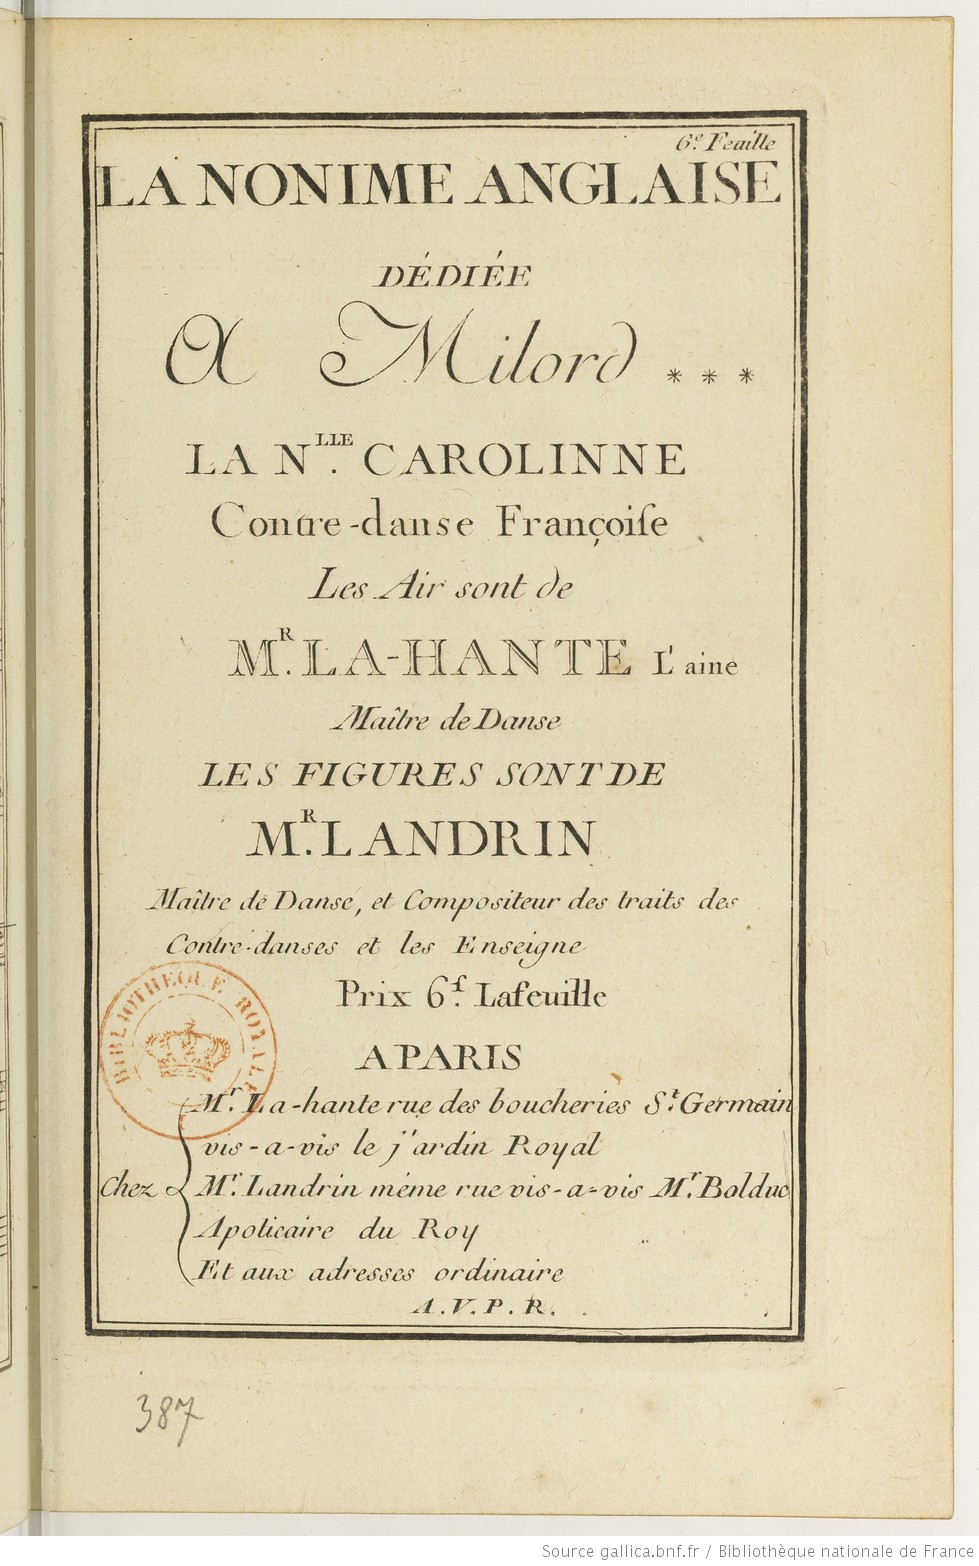 6.e Feuille
LA NONIME ANGLAISE
DÉDIÉE
A Milord ***
LA N.LLE CAROLINNE
Contre-danse Françoiſe
Les Air sont de
M.R LA-HANTE L'aine
Maître de Danse
LES FIGURES SONT DE
M.R LANDRIN
Maître de Danse, et Compositeur des traits des
Contre-danses et les Enseigne
Prix 6.f Lafeuille
A PARIS
Chez
M.r La-hante rue des boucheries S.t Germain
vis-a-vis le j'ardin Royal
M.r Landrin méme rue vis-a-vis M.r Bolduc
Apoticaire du Roy
Et aux adresses ordinaire
A.V.P.R.
BIBLIOTHEQUE ROYALE
387
Source gallica.bnf.fr / Bibliothèque nationale de France